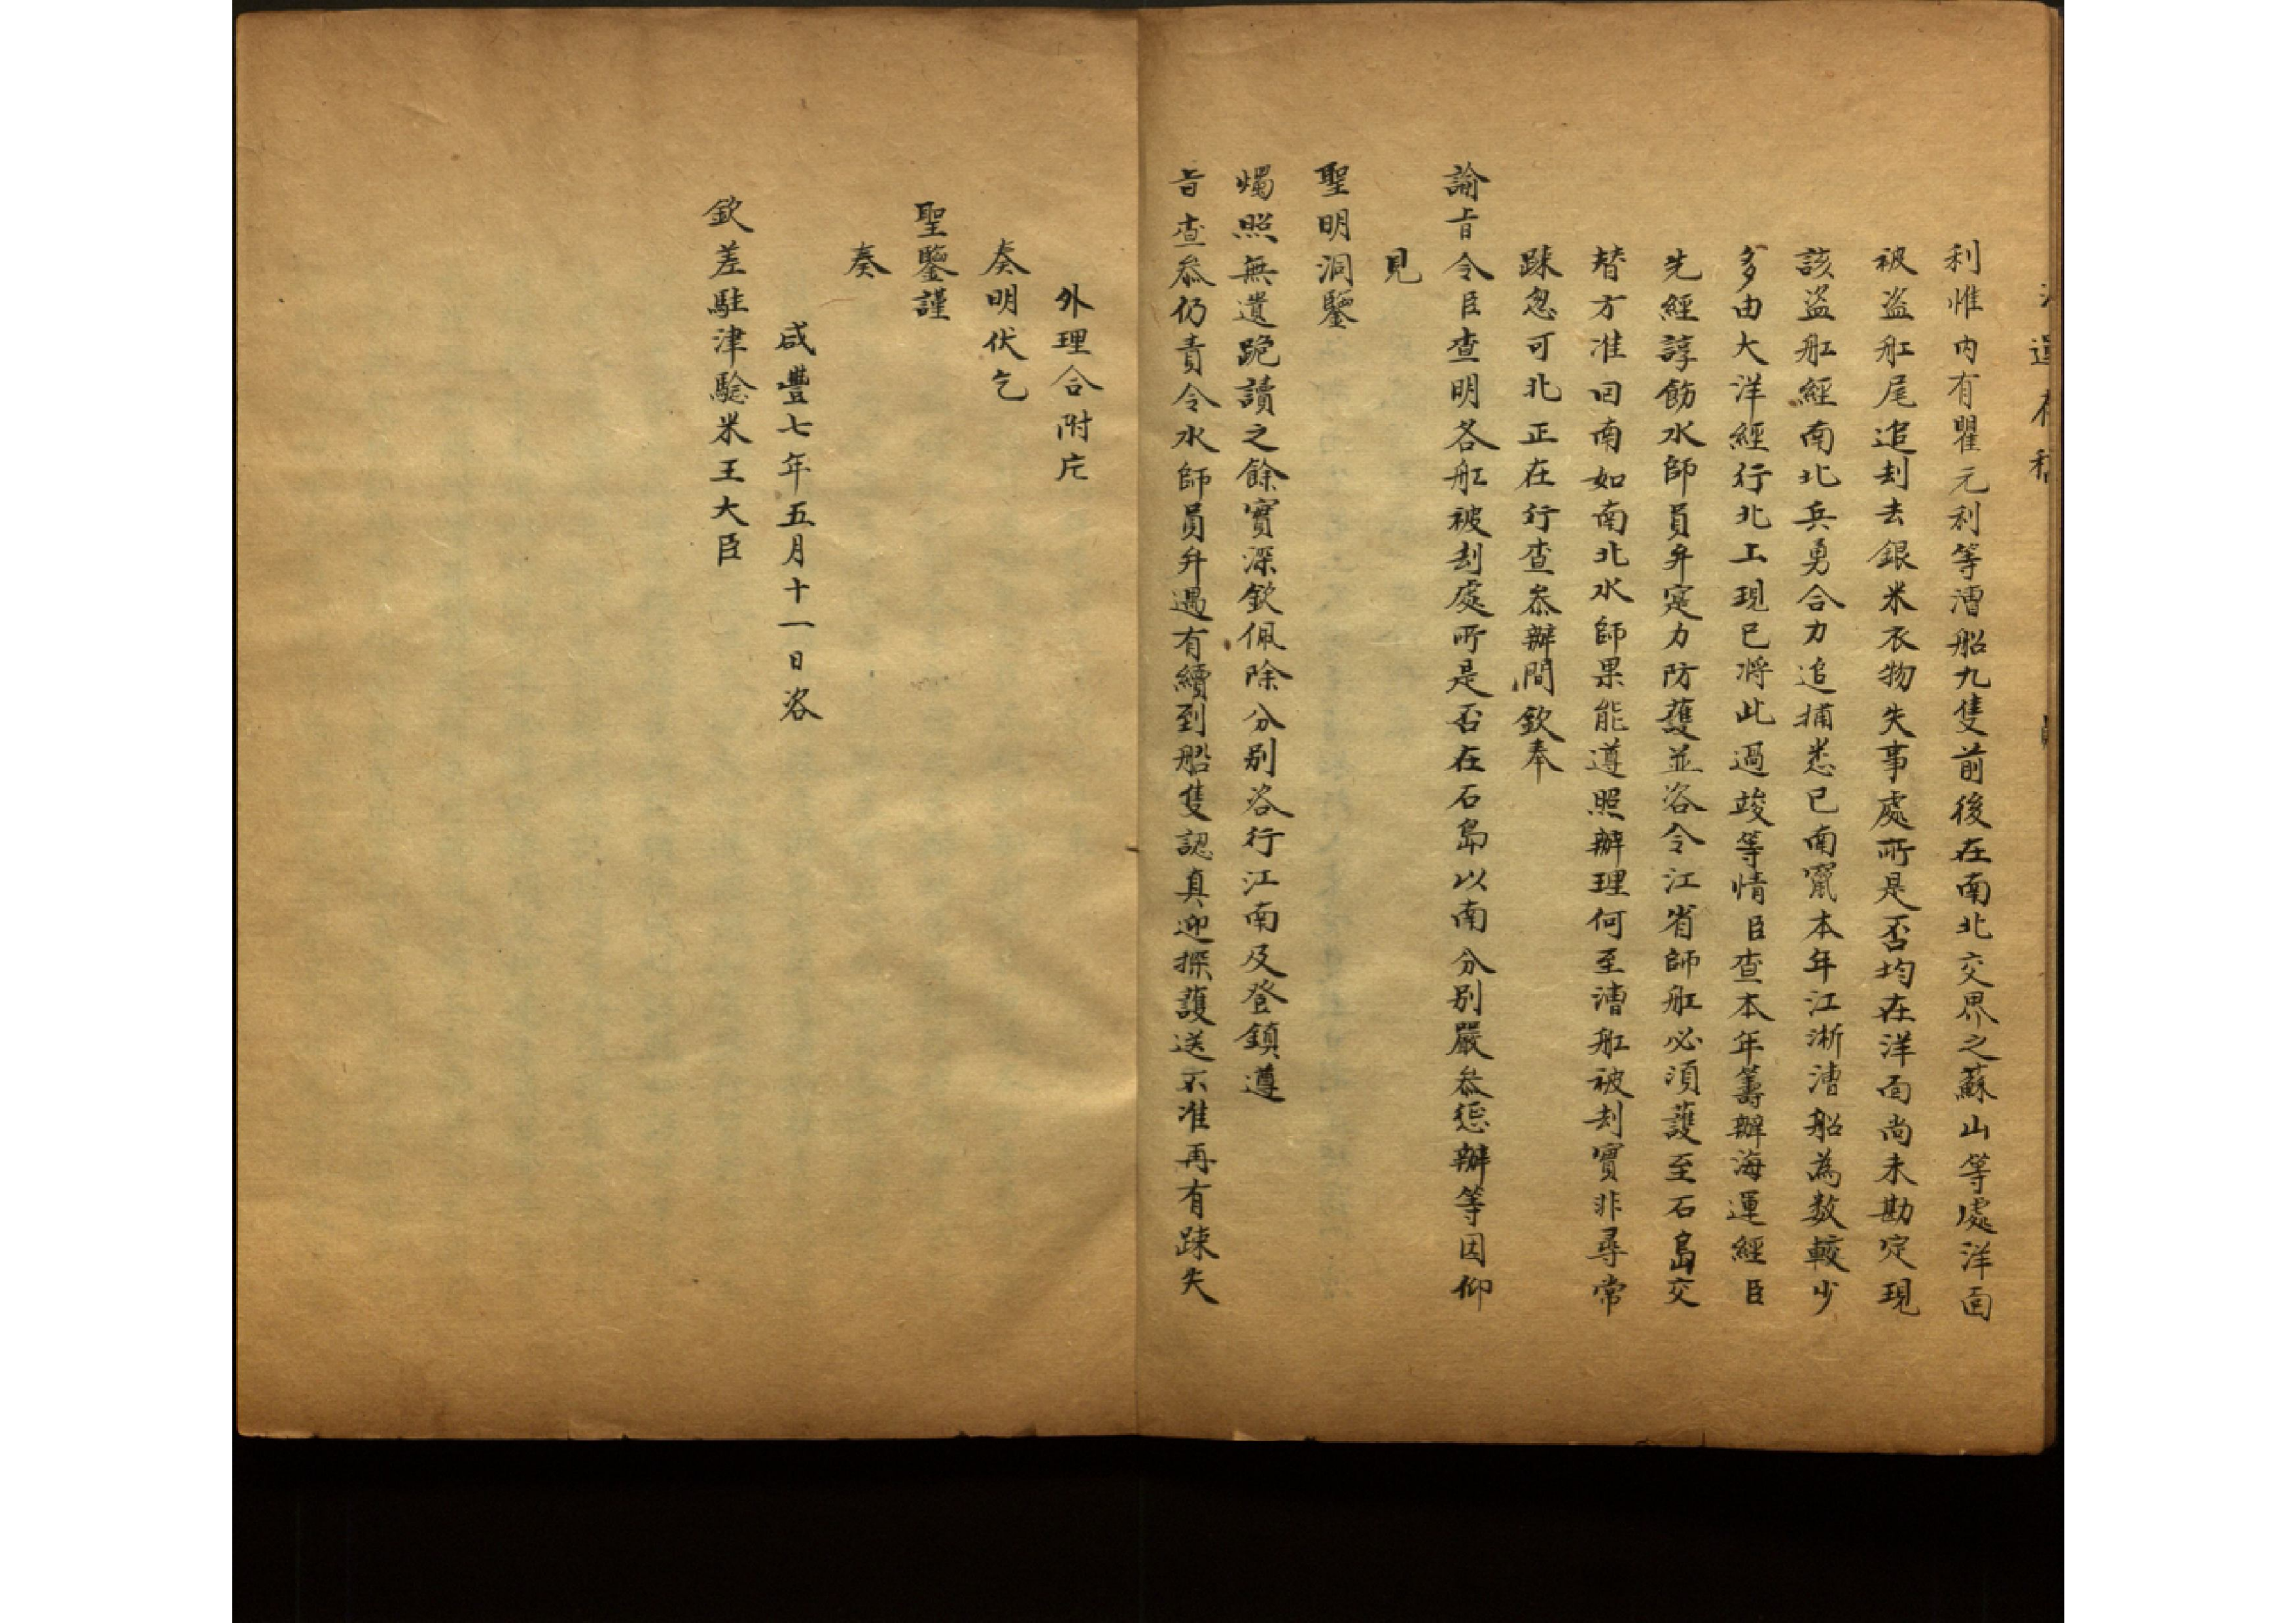 利惟内有瞿元利等漕船九隻前後在南北交界之蘇山等處洋面
被盗舡尾追刦去銀米衣物失事處所是否均在洋面尚未勘定現
該盗舡經南北兵勇合力追捕悉已南竄本年江浙漕船為数較少
多由大洋經行北上現已将此過竣等情臣查本年籌辦海運經臣
先經諄飭水師員弁寔力防護並咨令江省師舡必須護至石島交
替方准回南如南北水師果能遵照辦理何至漕舡被刦實非尋常
踈忽可北正在行查叅辦間欽奉
諭旨令臣查明各舡被刦處所是否在石島以南分别嚴叅懲辦等因仰
見
聖明洞鑒
燭照無遺跪讀之餘實深欽佩除分别咨行江南及登鎮遵
旨查叅仍責令水師員弁遇有續到船隻認真迎探護送不准再有踈失
外理合附片
奏明伏乞
聖鑒謹
奏
咸豐七年五月十一日咨
欽差駐津驗米王大臣